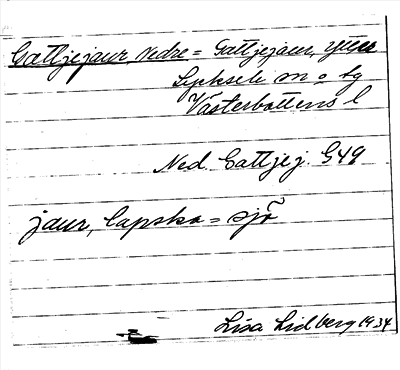 Gattjejaur, Nedre = Gattjejaur, yttre
Lycksele sn o tg
Västerbottens l
Ned. Gattjej. G49
jaur, lapska = sjö
Lisa Lidberg 1934